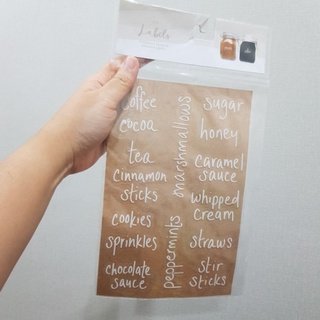 Labels
coffee
cocoa
tea
cinnamon
sticks
cookies
sprinkles
chocolate
sauce
marshmallows
peppermints
sugar
honey
caramel
sauce
whipped
cream
straws
stir
sticks